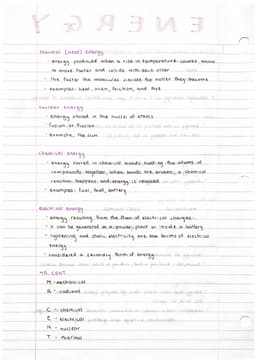 ENERGY
thermal (heat) energy
- energy produced when a rise in temperature causes atoms
to move faster and collide with each other
- the faster the molecules collide the hotter they become
- examples: heat, oven, friction, and fire
nuclear energy
- energy stored in the nuclei of atoms
- fusion or fission
- example, the sun
chemical energy
- energy stored in chemical bonds holding the atoms of
compounds together, when bonds are broken, a chemical
reaction happens and energy is released
- examples: fuel, food, battery
electrical energy
- energy resulting from the flow of electrical charges
- it can be generated at a power plant or inside a battery
- lightening and static electricity are also forms of electrical
energy
- considered a secondary form of energy
MR. CENT
M - mechanical
R - radiant
C - chemical
E - electrical
N - nuclear
T - thermal